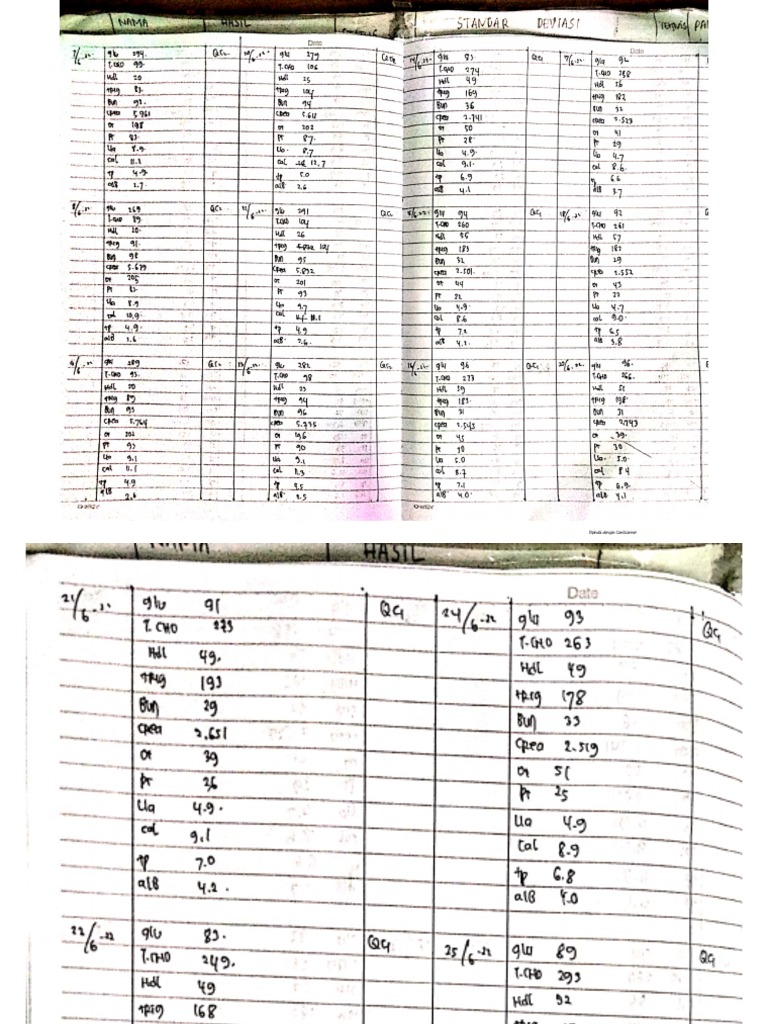 NAMA HASIL STANDAR DEVIASI
Date
glu 294.
T.CHO 99.
Hdl 20
trig 83.
Bun 92.
Crea 5.961
ot 198
Pt 83.
Ua 8.9
cal 11.2
tp 4.9
alB 2.7.
glu 279
T.CHO 106
Hdl 25
trig 104
Bun 94
Crea 5.618
ot 202
Pt 87.
Ua. 8.7
cal 12.7
tp 5.0
alB 2.6
glu 83
T.CHO 274
Hdl 49
trig 169
Bun 36
Crea 2.741
ot 50
Pt 28
Ua 4.9.
cal 9.1.
tp 6.9
alB 4.1
glu 92
T.CHO 258
Hdl 56
trig 182
Bun 32
Crea 2.523
ot 41
Pt 29
Ua 4.7
cal 8.6
tp 6.6
alB 3.7
glu 269
T.CHO 89
Hdl 20.
trig 91.
Bun 98
Crea 5.679
ot 205
Pt 83.
Ua 8.9
cal 10.9.
tp 4.9
alB 2.6
glu 291
T.CHO 104
Hdl 26
trig 104
Bun 95
Crea 5.892
ot 201
Pt 93
Ua 9.7
cal 10.1
tp 4.9
alB 2.6.
glu 94
T.CHO 260
Hdl 56
trig 183
Bun 32
Crea 2.501.
ot 44
Pt 22
Ua 4.9
cal 8.6
tp 7.2
alB 4.2.
glu 92
T.CHO 261
Hdl 57
trig 182
Bun 29
Crea 2.552
ot 43
Pt 23
Ua 4.7
cal 9.0
tp 6.5
alB 3.8
glu 289
T.CHO 93.
Hdl 20
trig 89
Bun 93
Crea 5.764
ot 202
Pt 92
Ua 9.1
cal 11.1
tp 4.9
alB 2.6
glu 282
T.CHO 98
Hdl 23
trig 94
Bun 96
Crea 5.735
ot 196
Pt 90
Ua 9.1
cal 11.3
tp 4.5
alB 2.5
glu 96
T.CHO 273
Hdl 59
trig 183.
Bun 31
Crea 2.543
ot 45
Pt 30
Ua 5.0
cal 8.7
tp 7.1
alB 4.0
glu 96.
T.CHO 266.
Hdl 51
trig 198
Bun 31
Crea 2.743
ot 39.
Pt 30
Ua. 5.0
cal 8.4
tp 6.9.
alB 4.1
Dipindai dengan CamScanner
NAMA HASIL
Date
21/6-22 glu 91 QC1
T.CHO 273
Hdl 49.
trig 193
Bun 29
Crea 2.651
ot 39
Pt 26
Ua 4.9.
cal 9.1
tp 7.0
alB 4.2.
24/6-22 glu 93 QC1
T.CHO 263
Hdl 49
trig 178
Bun 33
Crea 2.519
ot 51
Pt 25
Ua 4.9
Cal 8.9
tp 6.8
alB 4.0
22/6-22 glu 83. QC1
T.CHO 249.
Hdl 49
trig 168
25/6-22 glu 89 QC1
T.CHO 293
Hdl 52